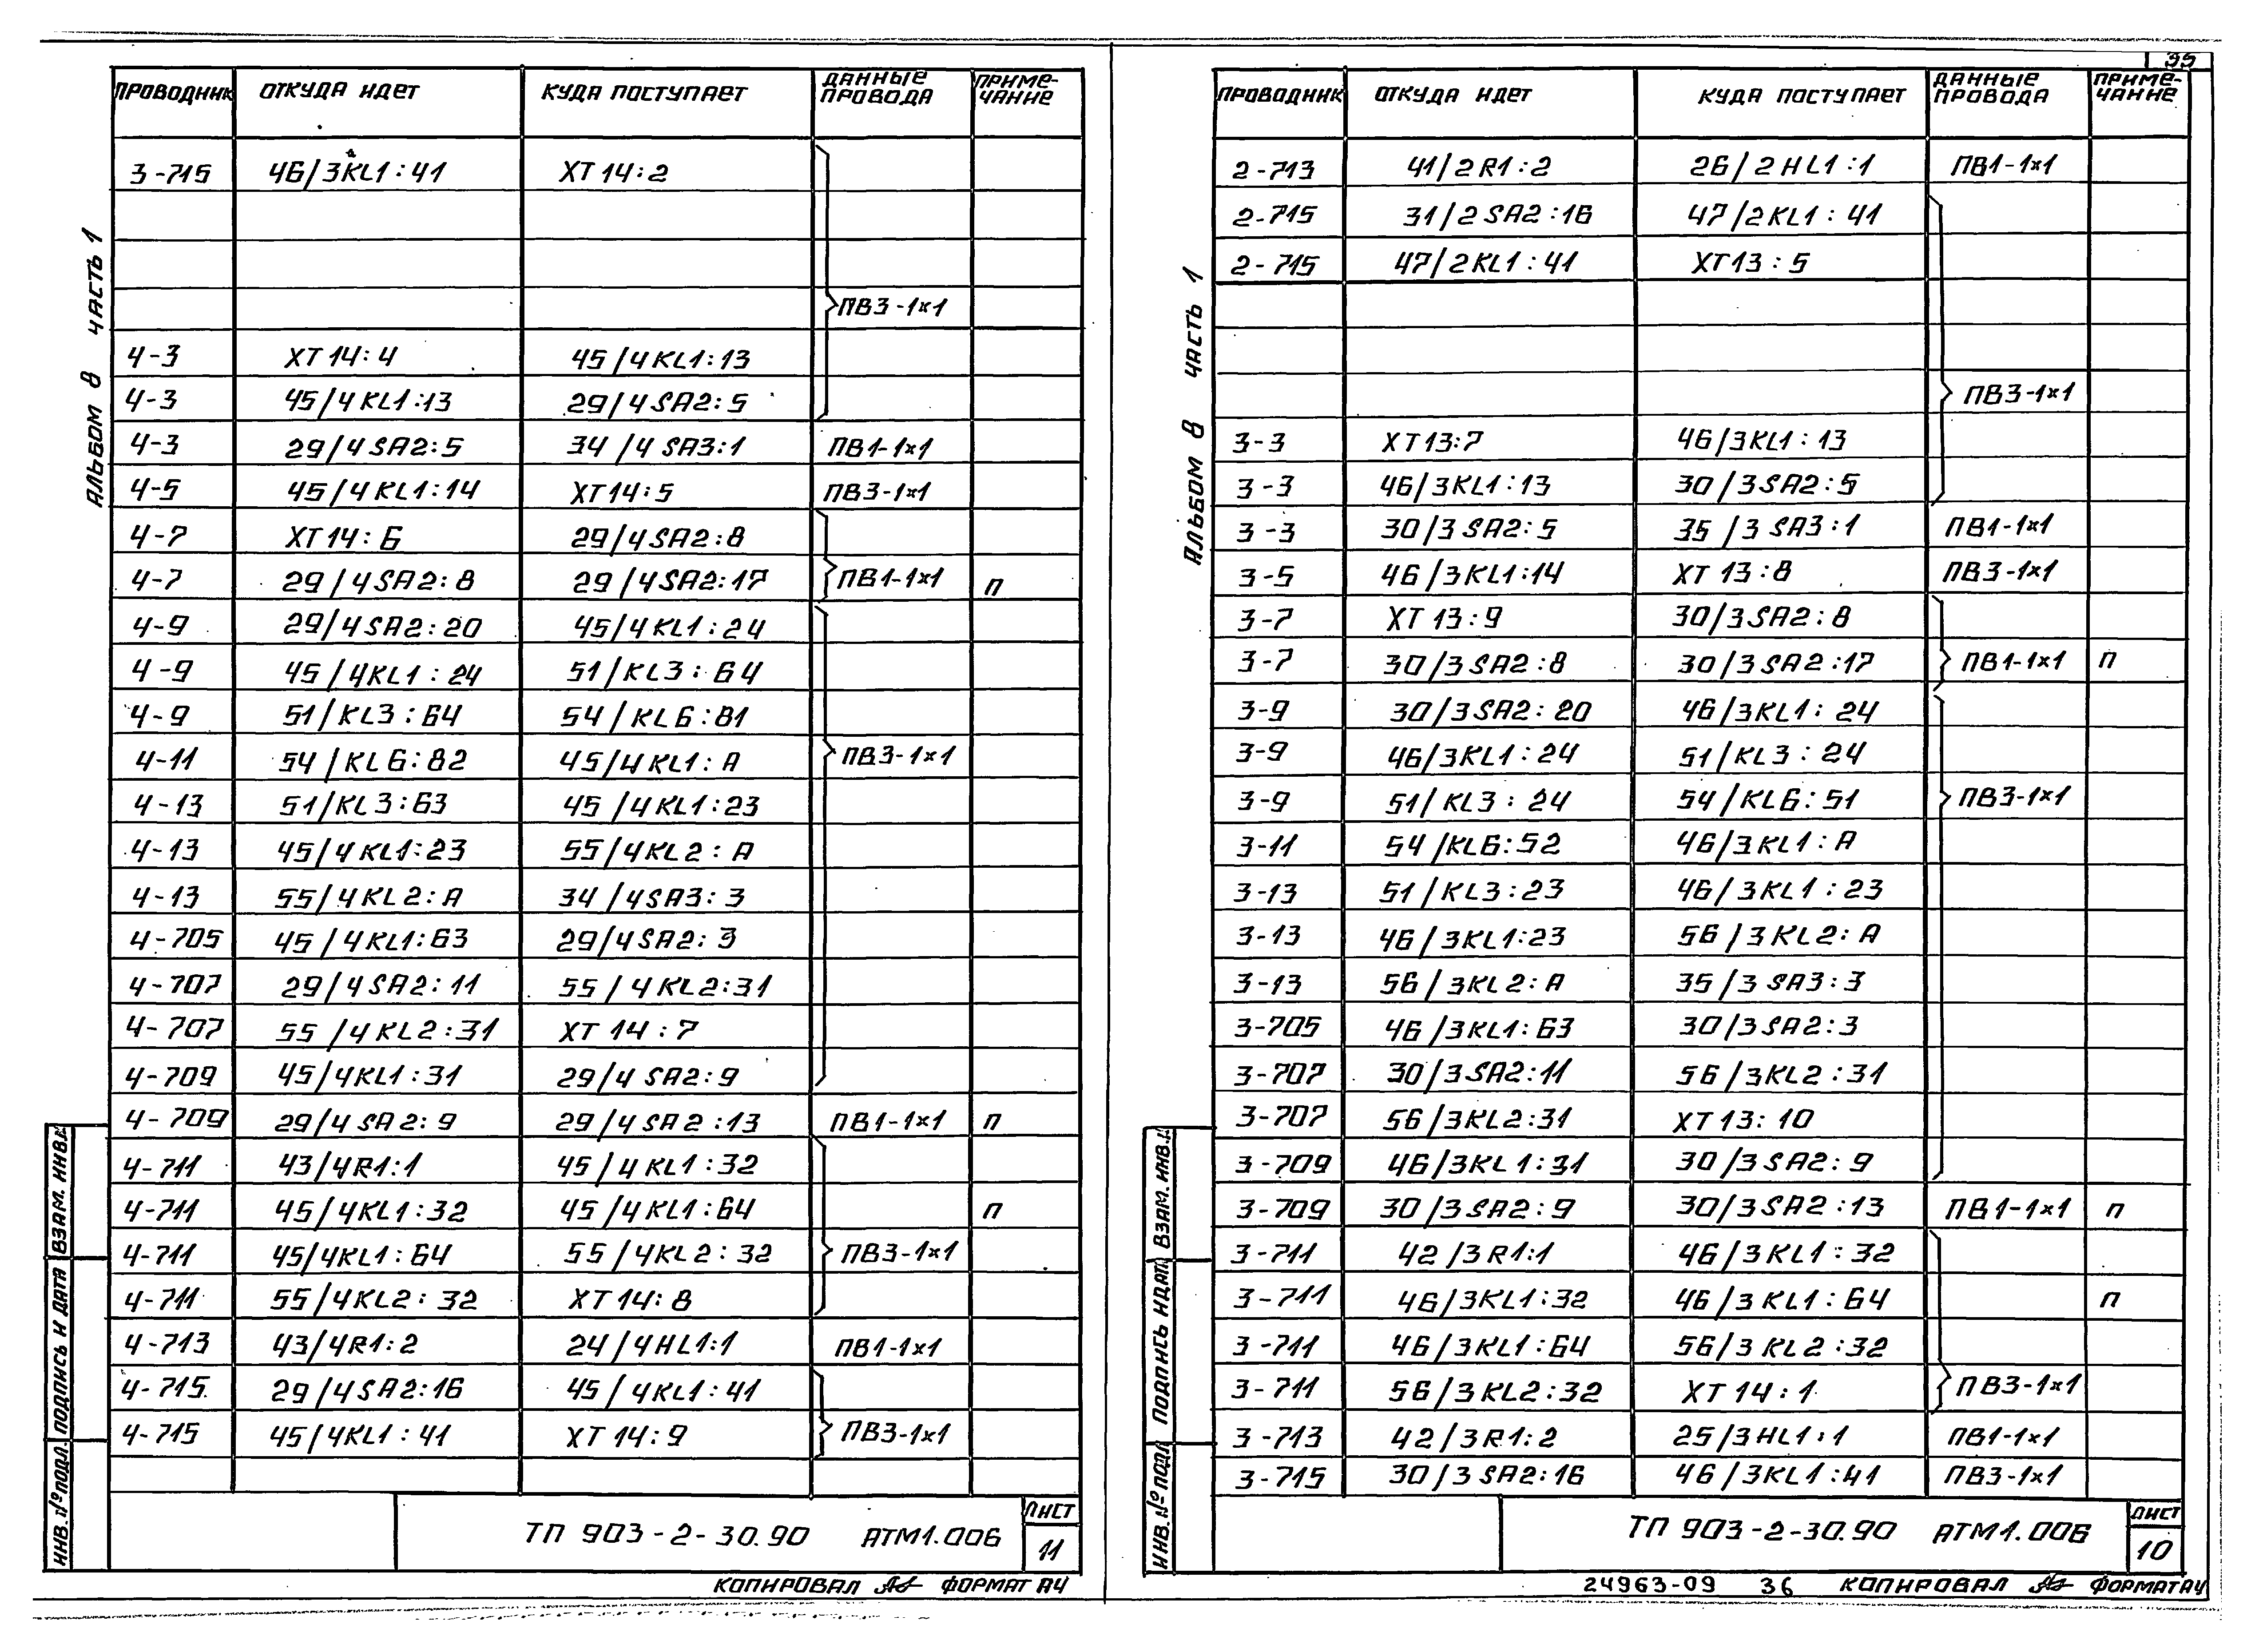 ПРОВОДНИК ОТКУДА ИДЕТ КУДА ПОСТУПАЕТ ДАННЫЕ ПРОВОДА ПРИМЕ-ЧАНИЕ
3-715 46/3KL1:41 XT14:2
ПВ3-1×1
4-3 XT14:4 45/4KL1:13
4-3 45/4KL1:13 29/4SA2:5
4-3 29/4SA2:5 34/4SA3:1 ПВ1-1×1
4-5 45/4KL1:14 XT14:5 ПВ3-1×1
4-7 XT14:6 29/4SA2:8
4-7 29/4SA2:8 29/4SA2:17 ПВ1-1×1 П
4-9 29/4SA2:20 45/4KL1:24
4-9 45/4KL1:24 51/KL3:64
4-9 51/KL3:64 54/KL6:81
4-11 54/KL6:82 45/4KL1:A ПВ3-1×1
4-13 51/KL3:63 45/4KL1:23
4-13 45/4KL1:23 55/4KL2:A
4-13 55/4KL2:A 34/4SA3:3
4-705 45/4KL1:63 29/4SA2:3
4-707 29/4SA2:11 55/4KL2:31
4-707 55/4KL2:31 XT14:7
4-709 45/4KL1:31 29/4SA2:9
4-709 29/4SA2:9 29/4SA2:13 ПВ1-1×1 П
4-711 43/4R1:1 45/4KL1:32
4-711 45/4KL1:32 45/4KL1:64 П
4-711 45/4KL1:64 55/4KL2:32 ПВ3-1×1
4-711 55/4KL2:32 XT14:8
4-713 43/4R1:2 24/4HL1:1 ПВ1-1×1
4-715 29/4SA2:16 45/4KL1:41
4-715 45/4KL1:41 XT14:9 ПВ3-1×1
ТП 903-2-30.90 АТМ1.006 ЛИСТ 11
КОПИРОВАЛ ФОРМАТ А4
АЛЬБОМ 8 ЧАСТЬ 1
ИНВ.№ПОДЛ. ПОДПИСЬ И ДАТА ВЗАМ. ИНВ.
35
ПРОВОДНИК ОТКУДА ИДЕТ КУДА ПОСТУПАЕТ ДАННЫЕ ПРОВОДА ПРИМЕ-ЧАНИЕ
2-713 41/2R1:2 26/2HL1:1 ПВ1-1×1
2-715 31/2SA2:16 47/2KL1:41
2-715 47/2KL1:41 XT13:5
ПВ3-1×1
3-3 XT13:7 46/3KL1:13
3-3 46/3KL1:13 30/3SA2:5
3-3 30/3SA2:5 35/3SA3:1 ПВ1-1×1
3-5 46/3KL1:14 XT13:8 ПВ3-1×1
3-7 XT13:9 30/3SA2:8
3-7 30/3SA2:8 30/3SA2:17 ПВ1-1×1 П
3-9 30/3SA2:20 46/3KL1:24
3-9 46/3KL1:24 51/KL3:24
3-9 51/KL3:24 54/KL6:51 ПВ3-1×1
3-11 54/KL6:52 46/3KL1:A
3-13 51/KL3:23 46/3KL1:23
3-13 46/3KL1:23 56/3KL2:A
3-13 56/3KL2:A 35/3SA3:3
3-705 46/3KL1:63 30/3SA2:3
3-707 30/3SA2:11 56/3KL2:31
3-707 56/3KL2:31 XT13:10
3-709 46/3KL1:31 30/3SA2:9
3-709 30/3SA2:9 30/3SA2:13 ПВ1-1×1 П
3-711 42/3R1:1 46/3KL1:32
3-711 46/3KL1:32 46/3KL1:64 П
3-711 46/3KL1:64 56/3KL2:32
3-711 56/3KL2:32 XT14:1 ПВ3-1×1
3-713 42/3R1:2 25/3HL1:1 ПВ1-1×1
3-715 30/3SA2:16 46/3KL1:41 ПВ3-1×1
ТП 903-2-30.90 АТМ1.006 ЛИСТ 10
24963-09 36 КОПИРОВАЛ ФОРМАТ А4
АЛЬБОМ 8 ЧАСТЬ 1
ИНВ.№ПОДЛ ПОДПИСЬ И ДАТА ВЗАМ. ИНВ.